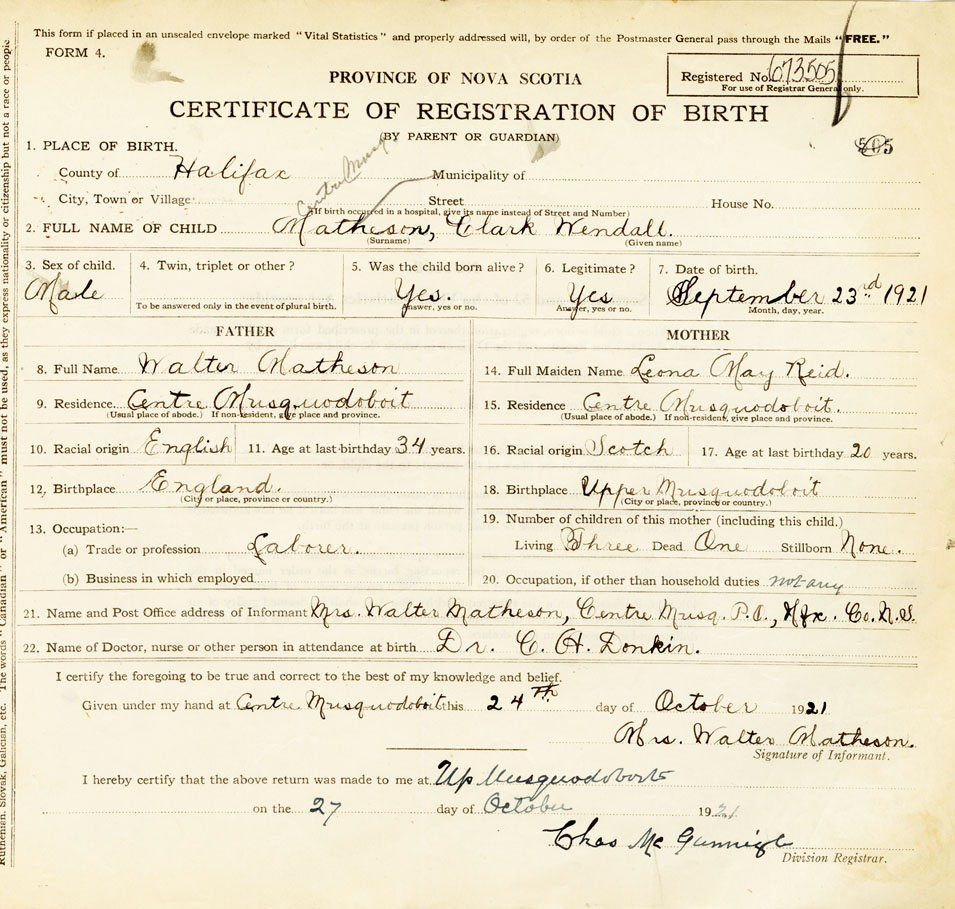 This form if placed in an unsealed envelope marked "Vital Statistics" and properly addressed will, by order of the Postmaster General pass through the Mails "FREE."
FORM 4.
Registered No. 673505
For use of Registrar General only.
PROVINCE OF NOVA SCOTIA
CERTIFICATE OF REGISTRATION OF BIRTH
(BY PARENT OR GUARDIAN)
505
1. PLACE OF BIRTH.
County of Halifax Municipality of
Centre Musq.
City, Town or Village Street House No.
(If birth occurred in a hospital, give its name instead of Street and Number)
2. FULL NAME OF CHILD Matheson, Clark Wendall.
(Surname) (Given name)
3. Sex of child. 4. Twin, triplet or other? 5. Was the child born alive? 6. Legitimate? 7. Date of birth.
Male Yes. Yes September 23rd 1921
To be answered only in the event of plural birth. Answer, yes or no. Answer, yes or no. Month, day, year.
FATHER MOTHER
8. Full Name Walter Matheson 14. Full Maiden Name Leona May Reid.
9. Residence Centre Musquodoboit 15. Residence Centre Musquodoboit.
(Usual place of abode.) If non-resident, give place and province. (Usual place of abode.) If non-resident, give place and province.
10. Racial origin English 11. Age at last birthday 34 years. 16. Racial origin Scotch 17. Age at last birthday 20 years.
12. Birthplace England. 18. Birthplace Upper Musquodoboit
(City or place, province or country.) (City or place, province or country.)
13. Occupation:— 19. Number of children of this mother (including this child.)
(a) Trade or profession Laborer. Living Three Dead One Stillborn None.
(b) Business in which employed 20. Occupation, if other than household duties not any
21. Name and Post Office address of Informant Mrs. Walter Matheson, Centre Musq. P.O., Hfx. Co. N.S.
22. Name of Doctor, nurse or other person in attendance at birth Dr. C. H. Donkin.
I certify the foregoing to be true and correct to the best of my knowledge and belief.
Given under my hand at Centre Musquodoboit this 24th day of October 1921
Mrs. Walter Matheson.
Signature of Informant.
I hereby certify that the above return was made to me at Up Musquodoboit
on the 27 day of October 1921
Chas Mc
Division Registrar.
Ruthenian, Slovak, Galician, etc. The words "Canadian" or "American" must not be used, as they express nationality or citizenship but not a race or people